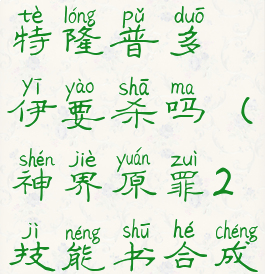 tè lóng pǔ duō
特隆普多
yī yào shā ma
伊要杀吗（
shén jiè yuán zuì
神界原罪2
jì néng shū hé chéng
技能书合成